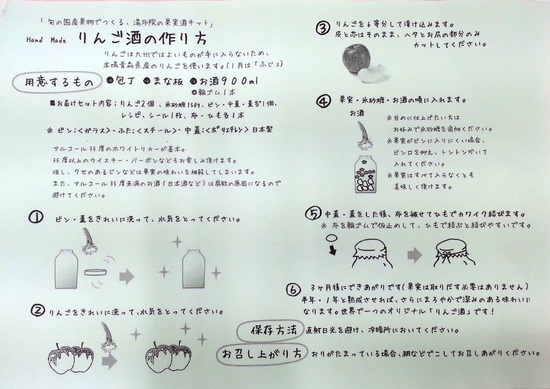 「旬の国産果物でつくる、湯布院の果実酒キット」
Hand Made りんご酒の作り方
りんごは九州ではよいものが手に入らないため、
本場青森県産のりんごを使います。(1月は「ふじ」)
用意するもの ➡包丁 ➡まな板 ➡お酒900ml
➡輪ゴム1本
■お届けセット内容:りんご2個、氷砂糖150g、ビン・中蓋・蓋各1個、
レシピ、シール1枚、布・ひも各1本
※ ビン:<ガラス>・ふた:<スチール>・中蓋:<ポリエチレン>日本製
アルコール35度のホワイトリカーが基本。
35度以上のウイスキー・バーボンなどもお楽しみ頂けます。
但し、クセのあるジンなどは果実の味わいを相殺してしまいます。
また、アルコール35度未満のお酒(日本酒など)は腐敗の原因になるので
避けてください。
① ビン・蓋をきれいに洗って、水気をとってください。
② りんごをきれいに洗って、水気をとってください。
③ りんごを6等分して漬け込みます。
皮と芯はそのまま、ヘタとお尻の部分のみ
カットしてください。
④ 果実・氷砂糖・お酒の順に入れます。
お酒
※ 甘めに仕上げたい方は
お好みで氷砂糖を追加ください。
※ 果実がビンに入りにくい場合、
ビン口を抑え、トントンがいて
入れてください。
※果実はすべて入らなくとも
美味しく頂けます。
⑤ 中蓋・蓋をした後、布を被せてひもでカワイク結びます。
※ 布を輪ゴムで仮止めして、ひもで結ぶと結びやすいです。
⑥ 3ヶ月後にできあがりです(果実は取りだす必要はありません)
半年・1年と熟成させれば、さらにまろやかで深みのある味わいに
なります。世界で一つのオリジナル「りんご酒」です!
保存方法 直射日光を避け、冷暗所においてください。
お召し上がり方 おりがたまっている場合、網などでこしてお召しあがりください。